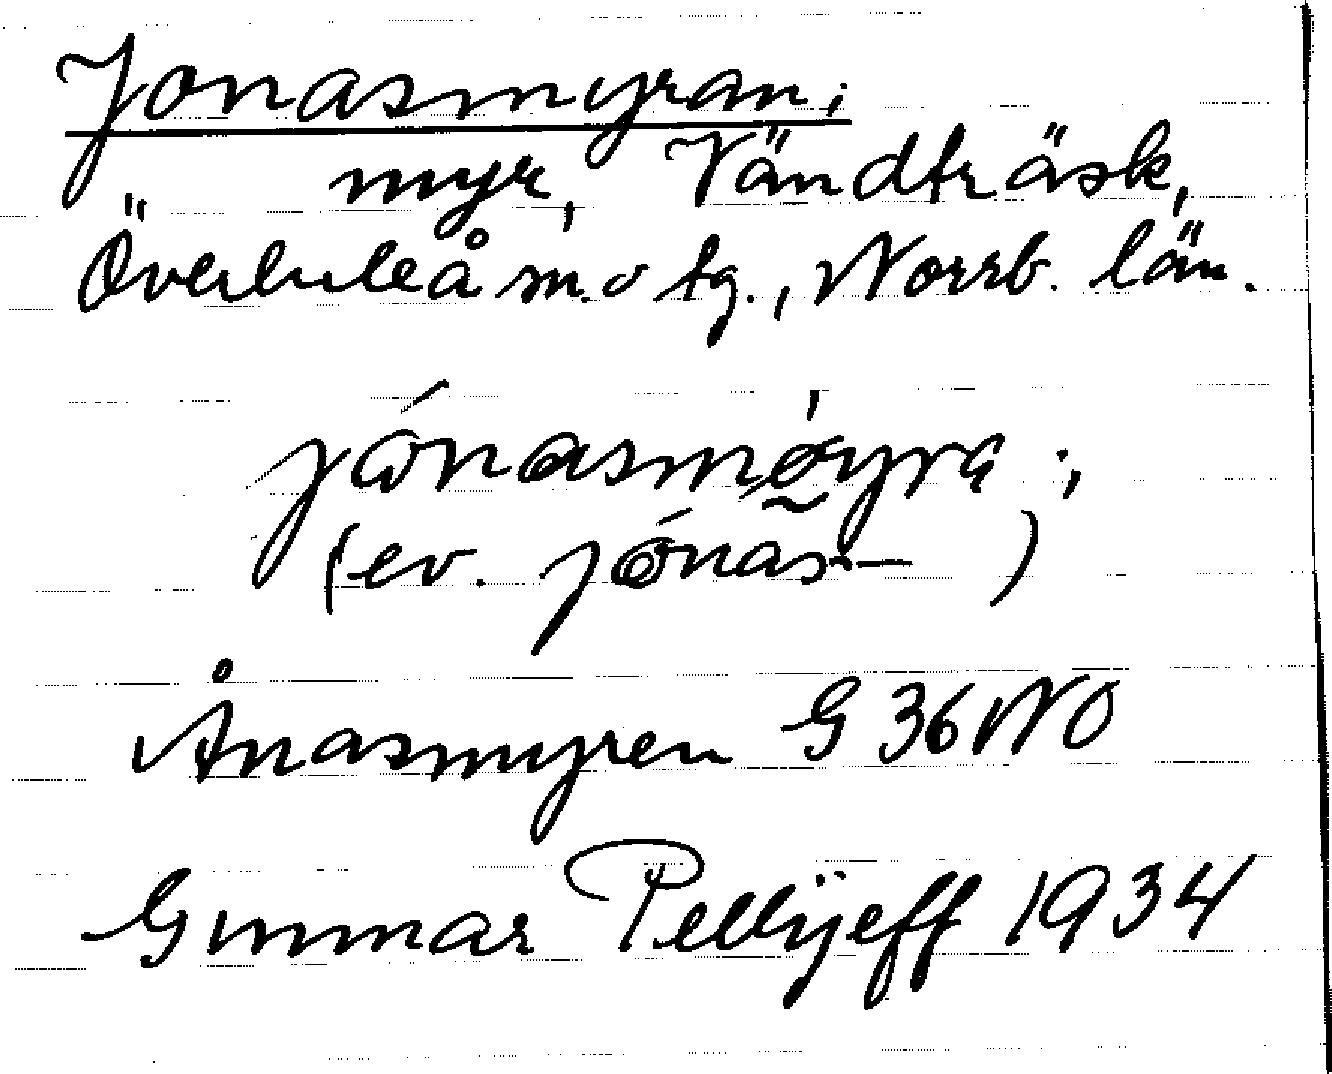 Jonasmyran;
myr, Vändträsk,
Överluleå sn. o tg., Norrb. län.
jónasmøyra ;
(ev. jónas- )
Ånasmyren G 36 NO
Gunnar Pellijeff 1934